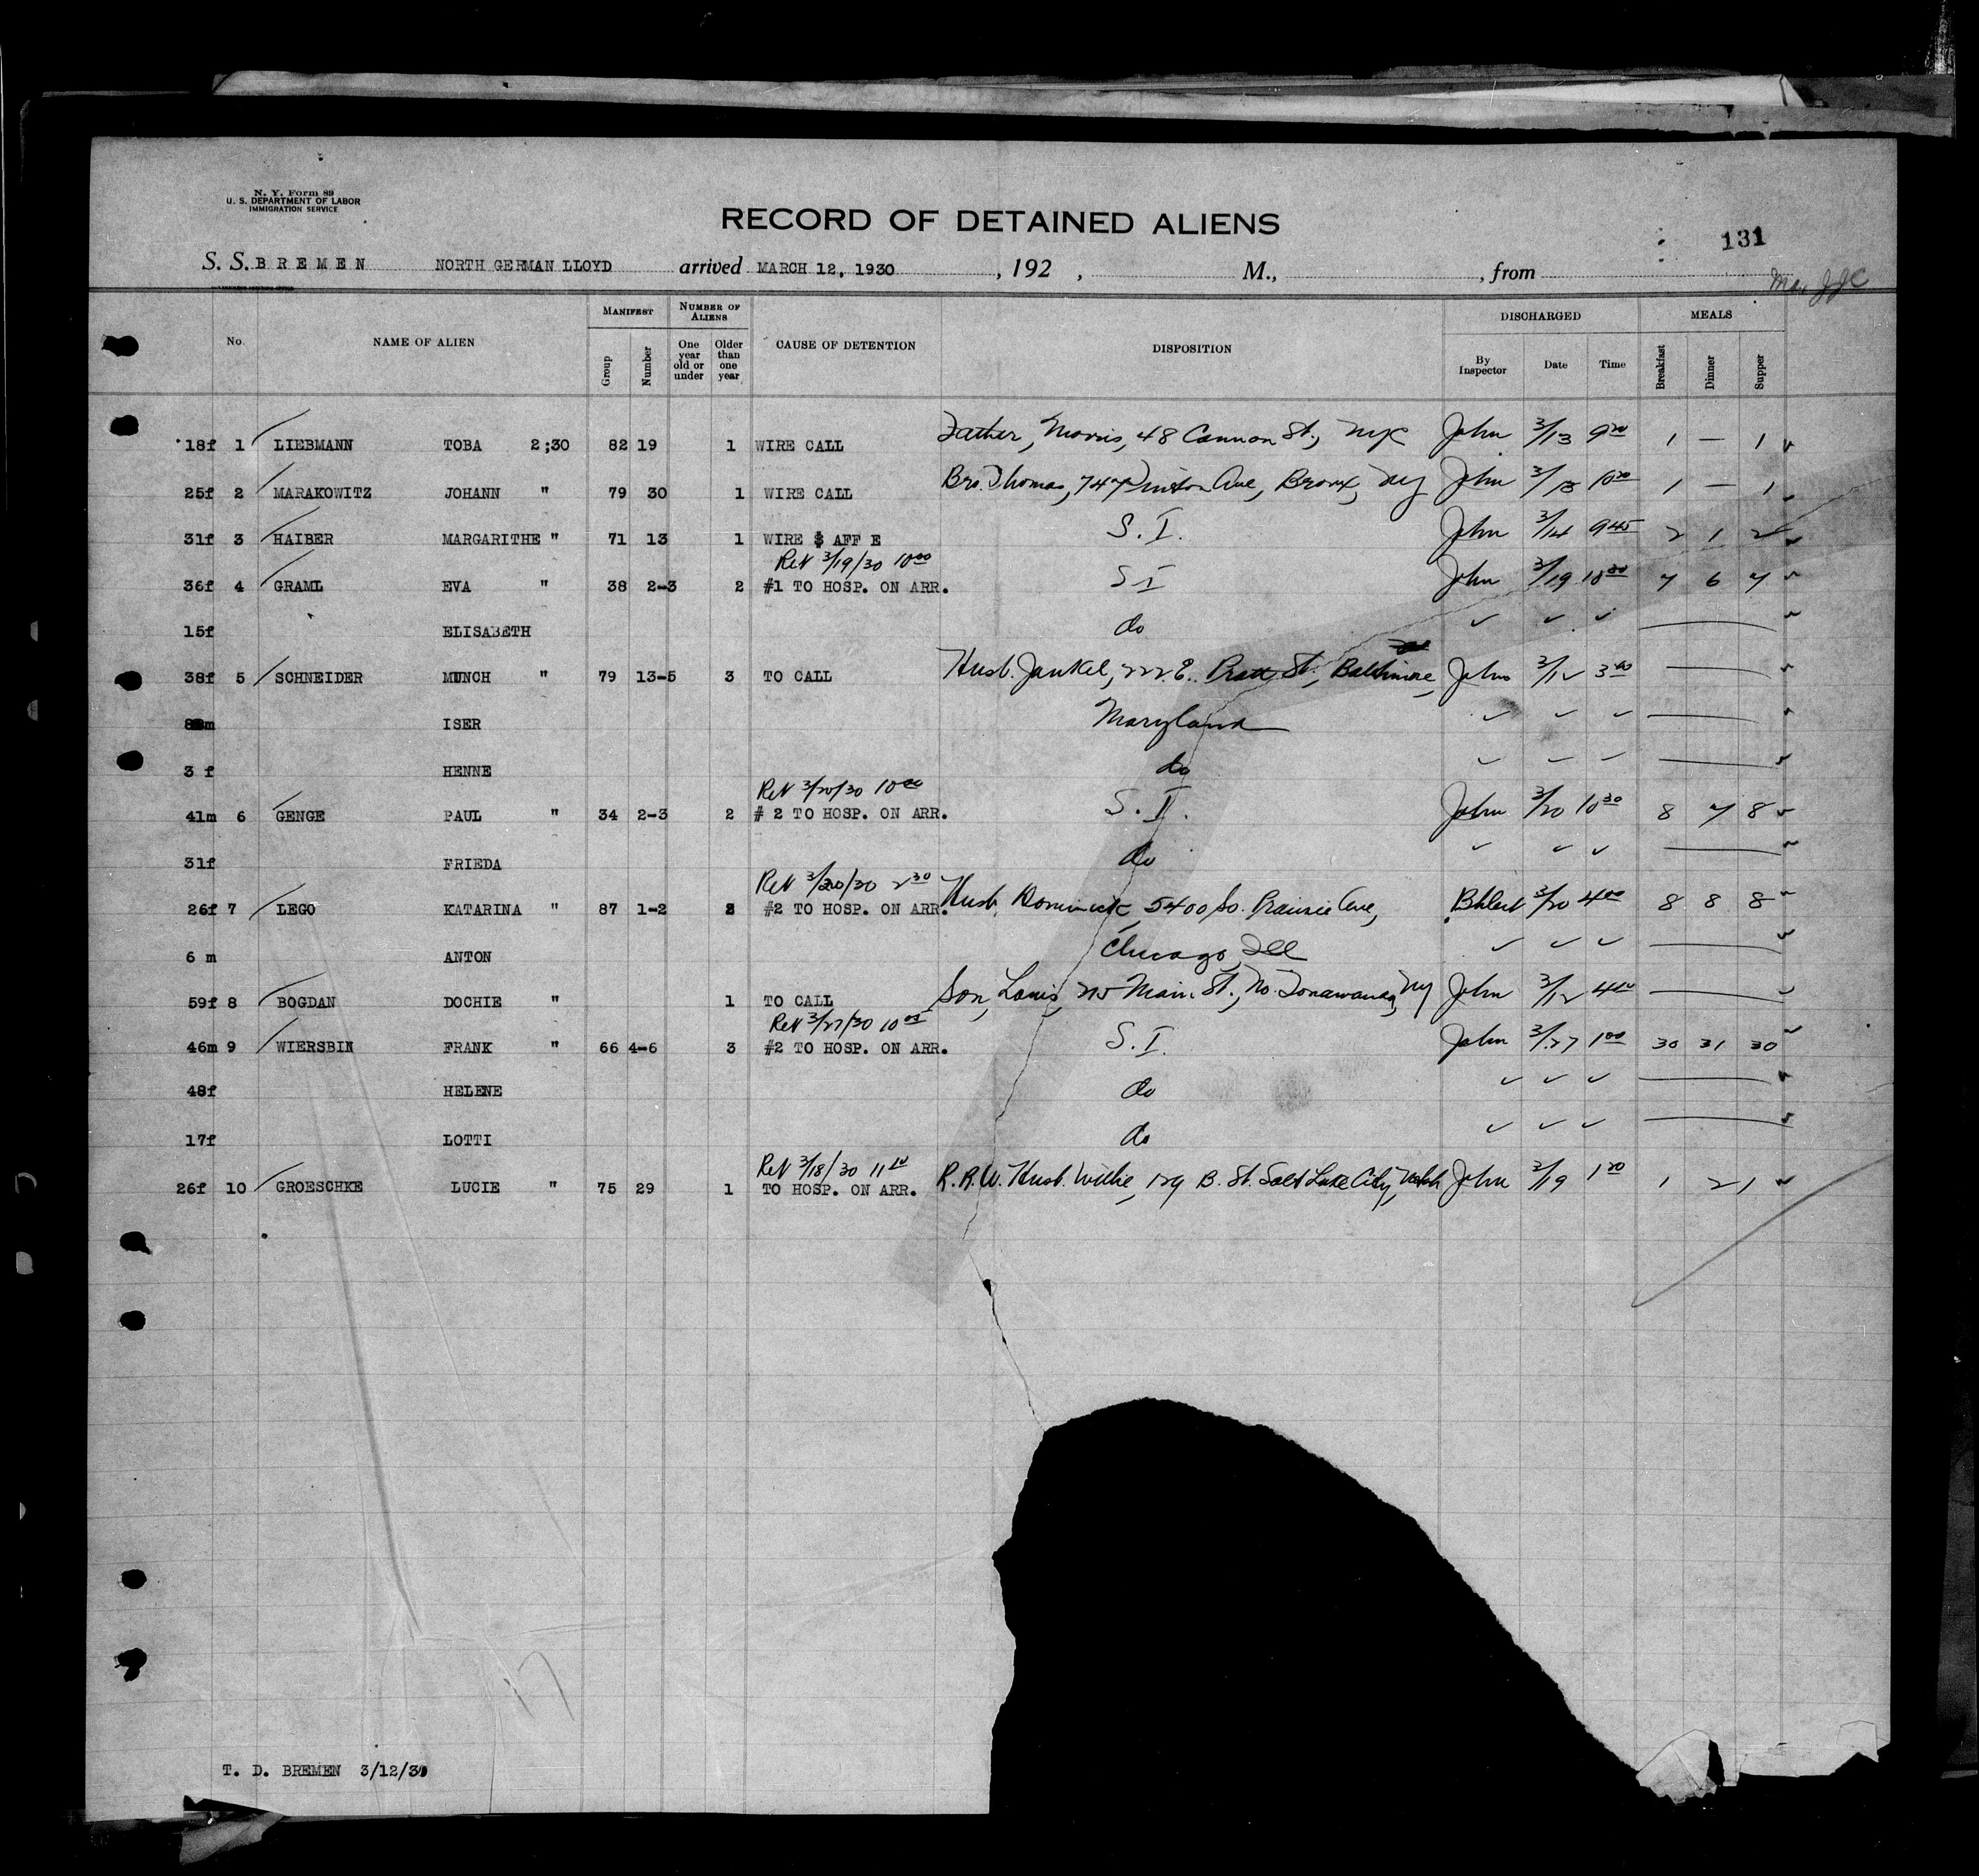 N. Y. Form 89
U. S. DEPARTMENT OF LABOR
IMMIGRATION SERVICE
RECORD OF DETAINED ALIENS
131
S. S. BREMEN NORTH GERMAN LLOYD arrived MARCH 12, 1930 , 192 , M., , from
No. NAME OF ALIEN MANIFEST Group Number NUMBER OF ALIENS One year old or under Older than one year CAUSE OF DETENTION DISPOSITION DISCHARGED By Inspector Date Time MEALS Breakfast Dinner Supper
18f 1 LIEBMANN TOBA 2;30 82 19 1 WIRE CALL Father, Morris, 48 Cannon St., NYC John 3/13 9 1 — 1
25f 2 MARAKOWITZ JOHANN " 79 30 1 WIRE CALL Bro. Thomas, 747 Ave, Bronx, NY John 3/13 10 1 — 1
31f 3 HAIBER MARGARITHE " 71 13 1 WIRE $ AFF E S.I. John 3/14 9 45 2 1 2
Re# 3/19/30 10 00
36f 4 GRAML EVA " 38 2-3 2 #1 TO HOSP. ON ARR. S I John 3/19 10 30 7 6 7
15f ELISABETH do
38f 5 SCHNEIDER MUNCH " 79 13-5 3 TO CALL Husb. Jankel, 222 E. Pratt St., Baltimore, John 3/12 3 00
8m ISER Maryland
3 f HENNE do
3/20/30 10 00
41m 6 GENGE PAUL " 34 2-3 2 # 2 TO HOSP. ON ARR. S.I. John 3/20 10 30 8 7 8
31f FRIEDA do
3/20/30 2 30
26f 7 LEGO KATARINA " 87 1-2 2 #2 TO HOSP. ON ARR. Husb. Dominick, 5400 So. Prairie Ave, 3/20 4 00 8 8 8
6 m ANTON Chicago, Ill
59f 8 BOGDAN DOCHIE " 1 TO CALL Son, Louis, Main St., No. Tonawanda, NY John 3/12
3/27/30 10 05
46m 9 WIERSBIN FRANK " 66 4-6 3 #2 TO HOSP. ON ARR. S.I. John 3/27 1 00 30 31 30
48f HELENE do
17f LOTTI do
3/18/30 11
26f 10 GROESCHKE LUCIE " 75 29 1 TO HOSP. ON ARR. R.R.W. Husb. Willie, 129 B. St. Salt Lake City, Utah John 3/19 1 1 2 1
T. D. BREMEN 3/12/30